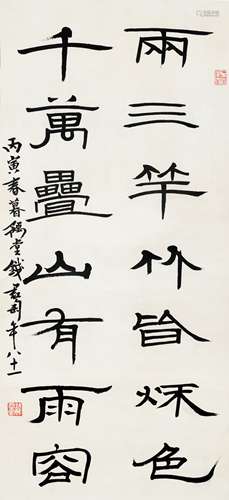 兩三竿竹皆秋色
千萬疊山有雨容
丙寅春暮豫堂錢君匋年八十一